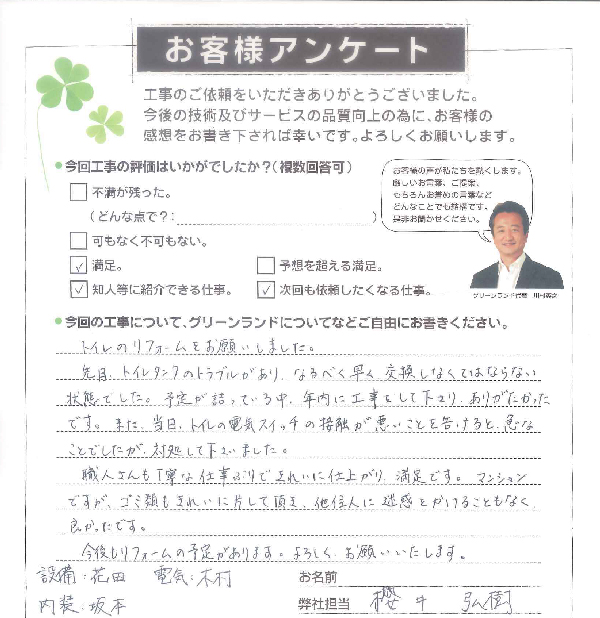 お客様アンケート
工事のご依頼をいただきありがとうございました。
今後の技術及びサービスの品質向上の為に、お客様の
感想をお書き下されば幸いです。よろしくお願いします。
今回工事の評価はいかがでしたか?(複数回答可)
不満が残った。
(どんな点で?: )
可もなく不可もない。
✓ 満足。
予想を超える満足。
✓ 知人等に紹介できる仕事。
✓ 次回も依頼したくなる仕事。
お客様の声が私たちを動くします。
厳しいお言葉、ご提案、
もちろんお誉めの言葉など
どんなことでも結構です。
是非お聞かせください。
グリーンランド代表
今回の工事について、グリーンランドについてなどご自由にお書きください。
トイレのリフォームをお願いしました。
先日、トイレタンクのトラブルがあり、なるべく早く交換しなくてはならない
状態でした。予定が詰っている中、年内に工事をして下さり、ありがたかった
です。また、当日、トイレの電気スイッチの接触が悪いことを告げると、急な
ことでしたが、対処して下さいました。
職人さんも丁寧な仕事ぶりできれいに仕上がり、満足です。マンション
ですが、ゴミ類もきれいに片して頂き、他住人に迷惑をかけることもなく、
良かったです。
今後もリフォームの予定があります。よろしくお願いいたします。
設備:花田 電気:木村
内装:坂本
お名前
弊社担当 櫻井 弘樹